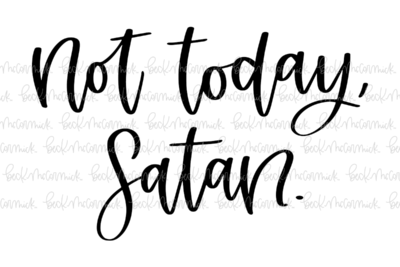 not today,
Satan.